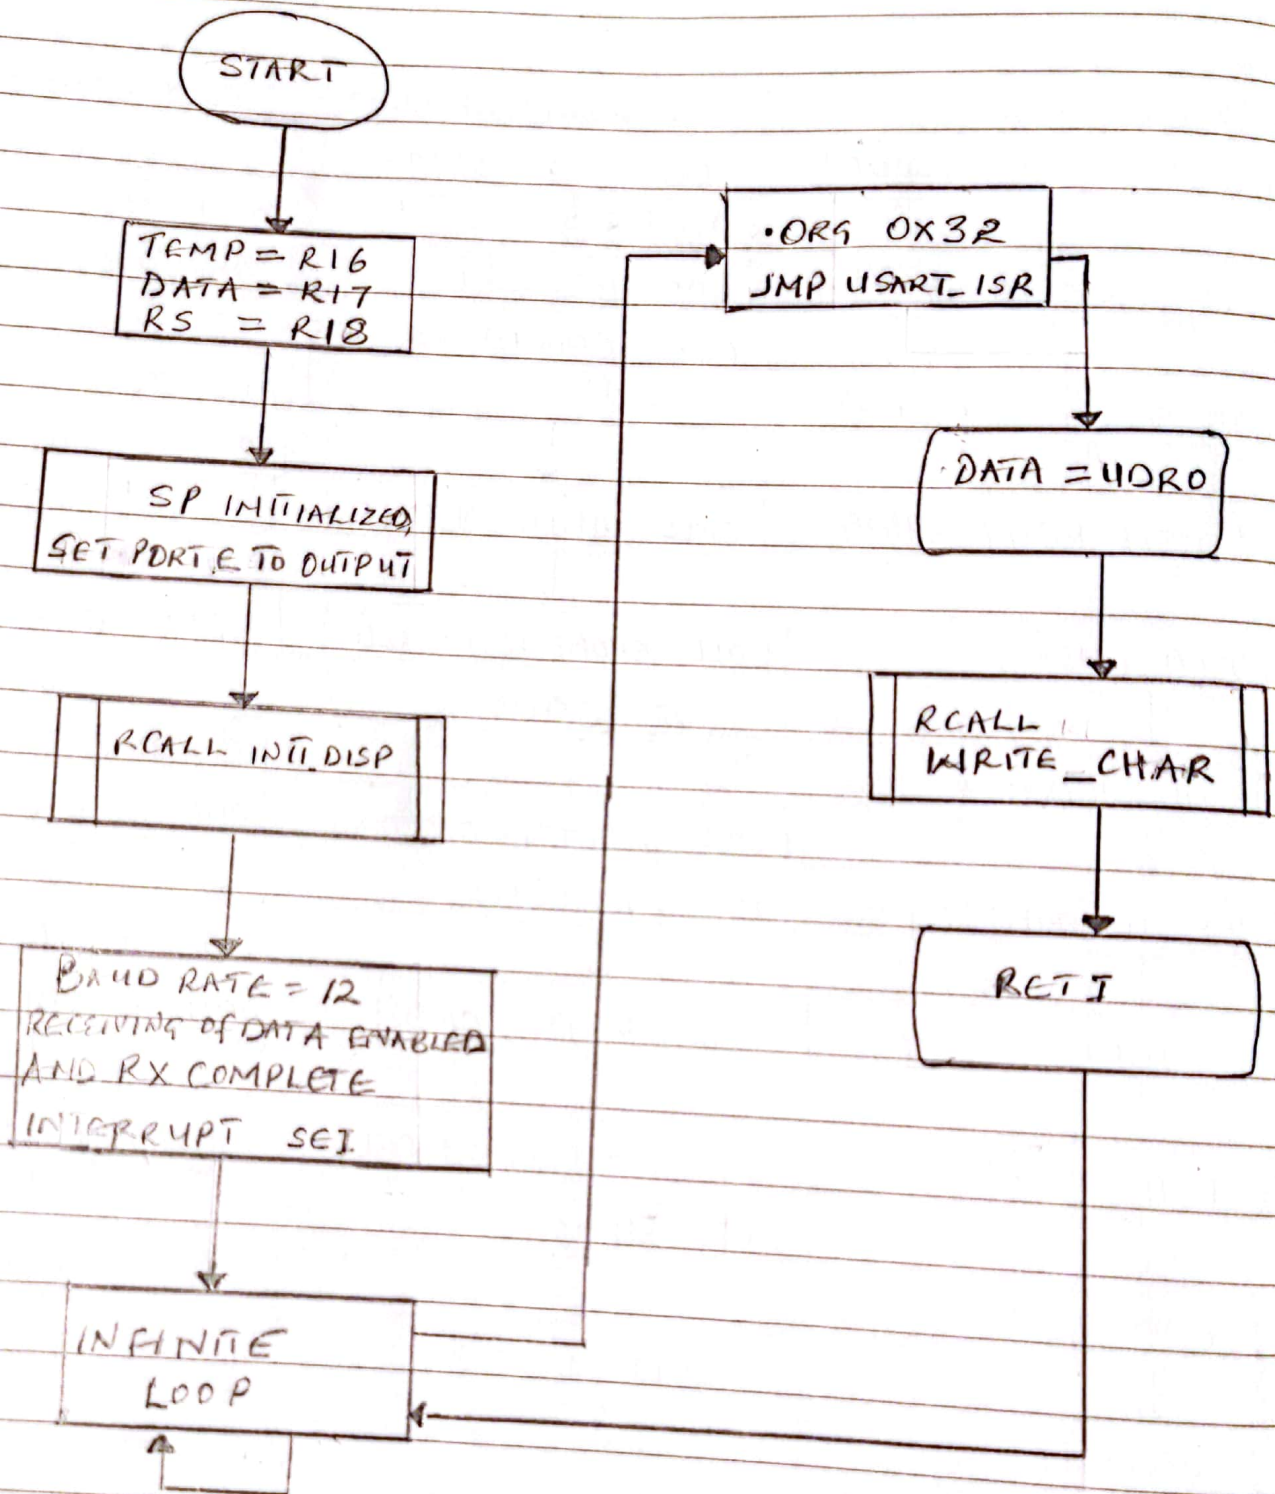 START
TEMP = R16
DATA = R17
RS = R18
SP INITIALIZED,
SET PORT E TO OUTPUT
RCALL INIT_DISP
BAUD RATE = 12
RECEIVING Of DATA ENABLED
AND RX COMPLETE
INTERRUPT SEI.
INFINITE
LOOP
.ORG 0X32
JMP USART_ISR
DATA = UDR0
RCALL
WRITE_CHAR
RETI